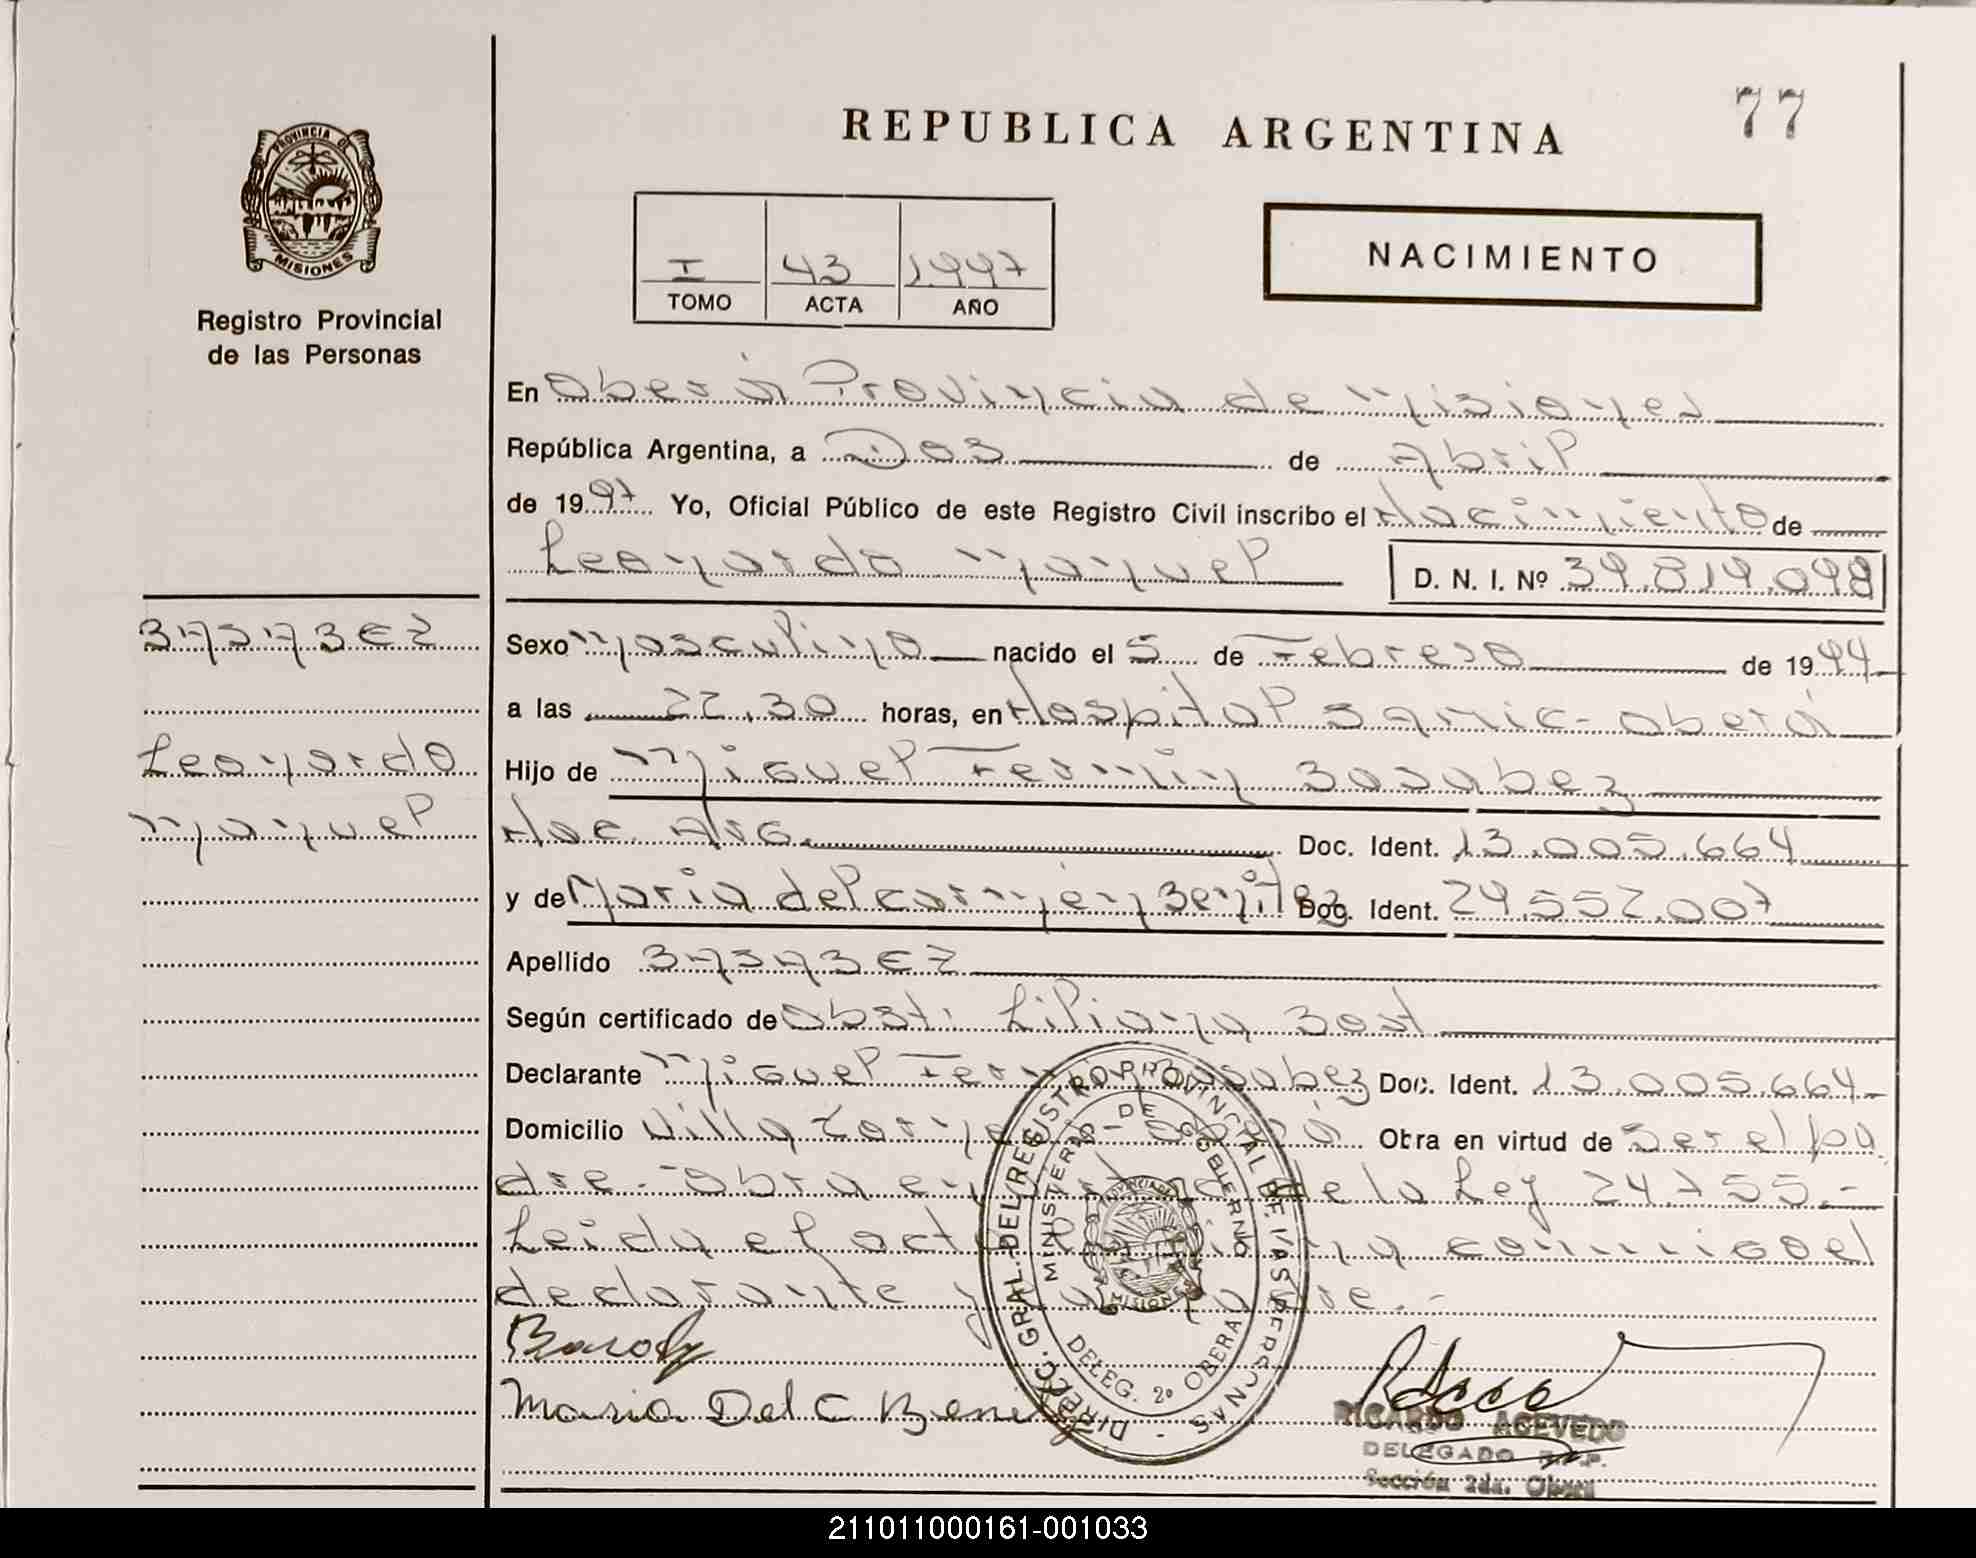 77
REPUBLICA ARGENTINA
PROVINCIA DE
MISIONES
Registro Provincial
de las Personas
I 43 1.997
TOMO ACTA AÑO
NACIMIENTO
En Oberá Provincia de Misiones
República Argentina, a Dos de Abril
de 1997 Yo, Oficial Público de este Registro Civil inscribo el Nacimiento de
Leonardo Manuel D. N. I. Nº 39.819.098
BASABEZ
Sexo Masculino nacido el 5 de Febrero de 1994
a las 22.30 horas, en Hospital Samic - Oberá
Leonardo
Hijo de Miguel Fermin Basabez
Manuel
Nac. Arg. Doc. Ident. 13.005.664
y de Maria del Carmen Benitez Doc. Ident. 24.552.007
Apellido BASABEZ
Según certificado de Obst. Liliana Bast
Declarante Miguel Fermin Basabez Doc. Ident. 13.005.664
Domicilio Villa Torneus - Oberá Obra en virtud de Ser el pa
dre.- Obra en virtud de la Ley 24.755.-
Leida el acta firma conmigo el
declarante y la madre.-
DIRECC. GRAL. DEL REGISTRO PROVINCIAL DE LAS PERSONAS
MINISTERIO DE GOBIERNO
PROVINCIA DE
MISIONES
DELEG. 2º OBERA
Maria Del C Benitez
RICARDO ACEVEDO
DELEGADO R.P.P.
Sección 2da. Oberá
211011000161-001033